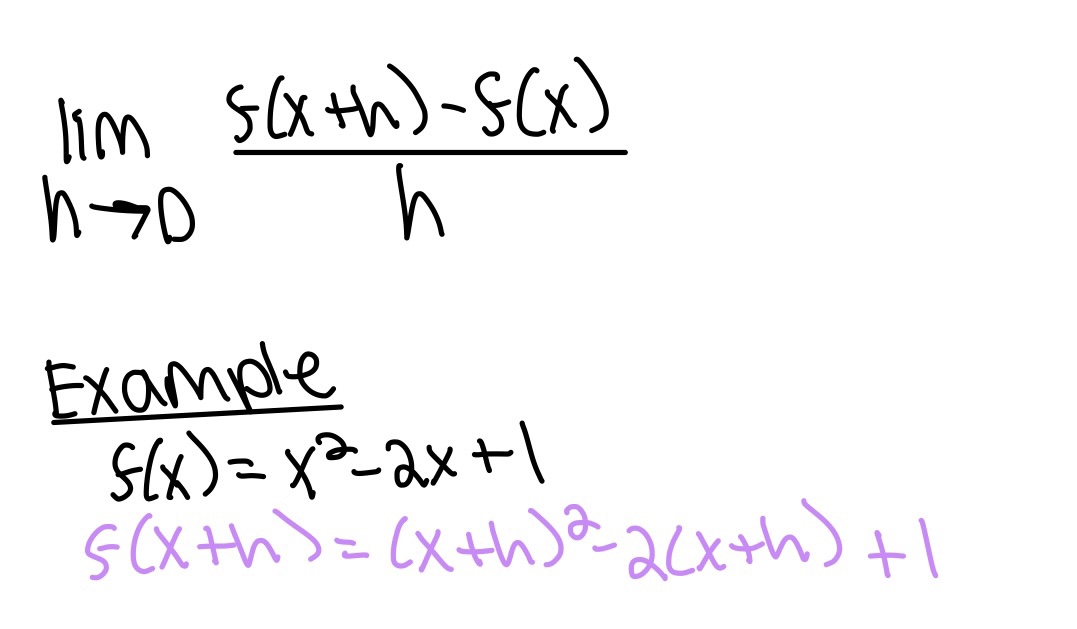 lim f(x+h)-f(x)
h→0 h
Example
f(x) = x²-2x+1
f(x+h) = (x+h)²-2(x+h)+1